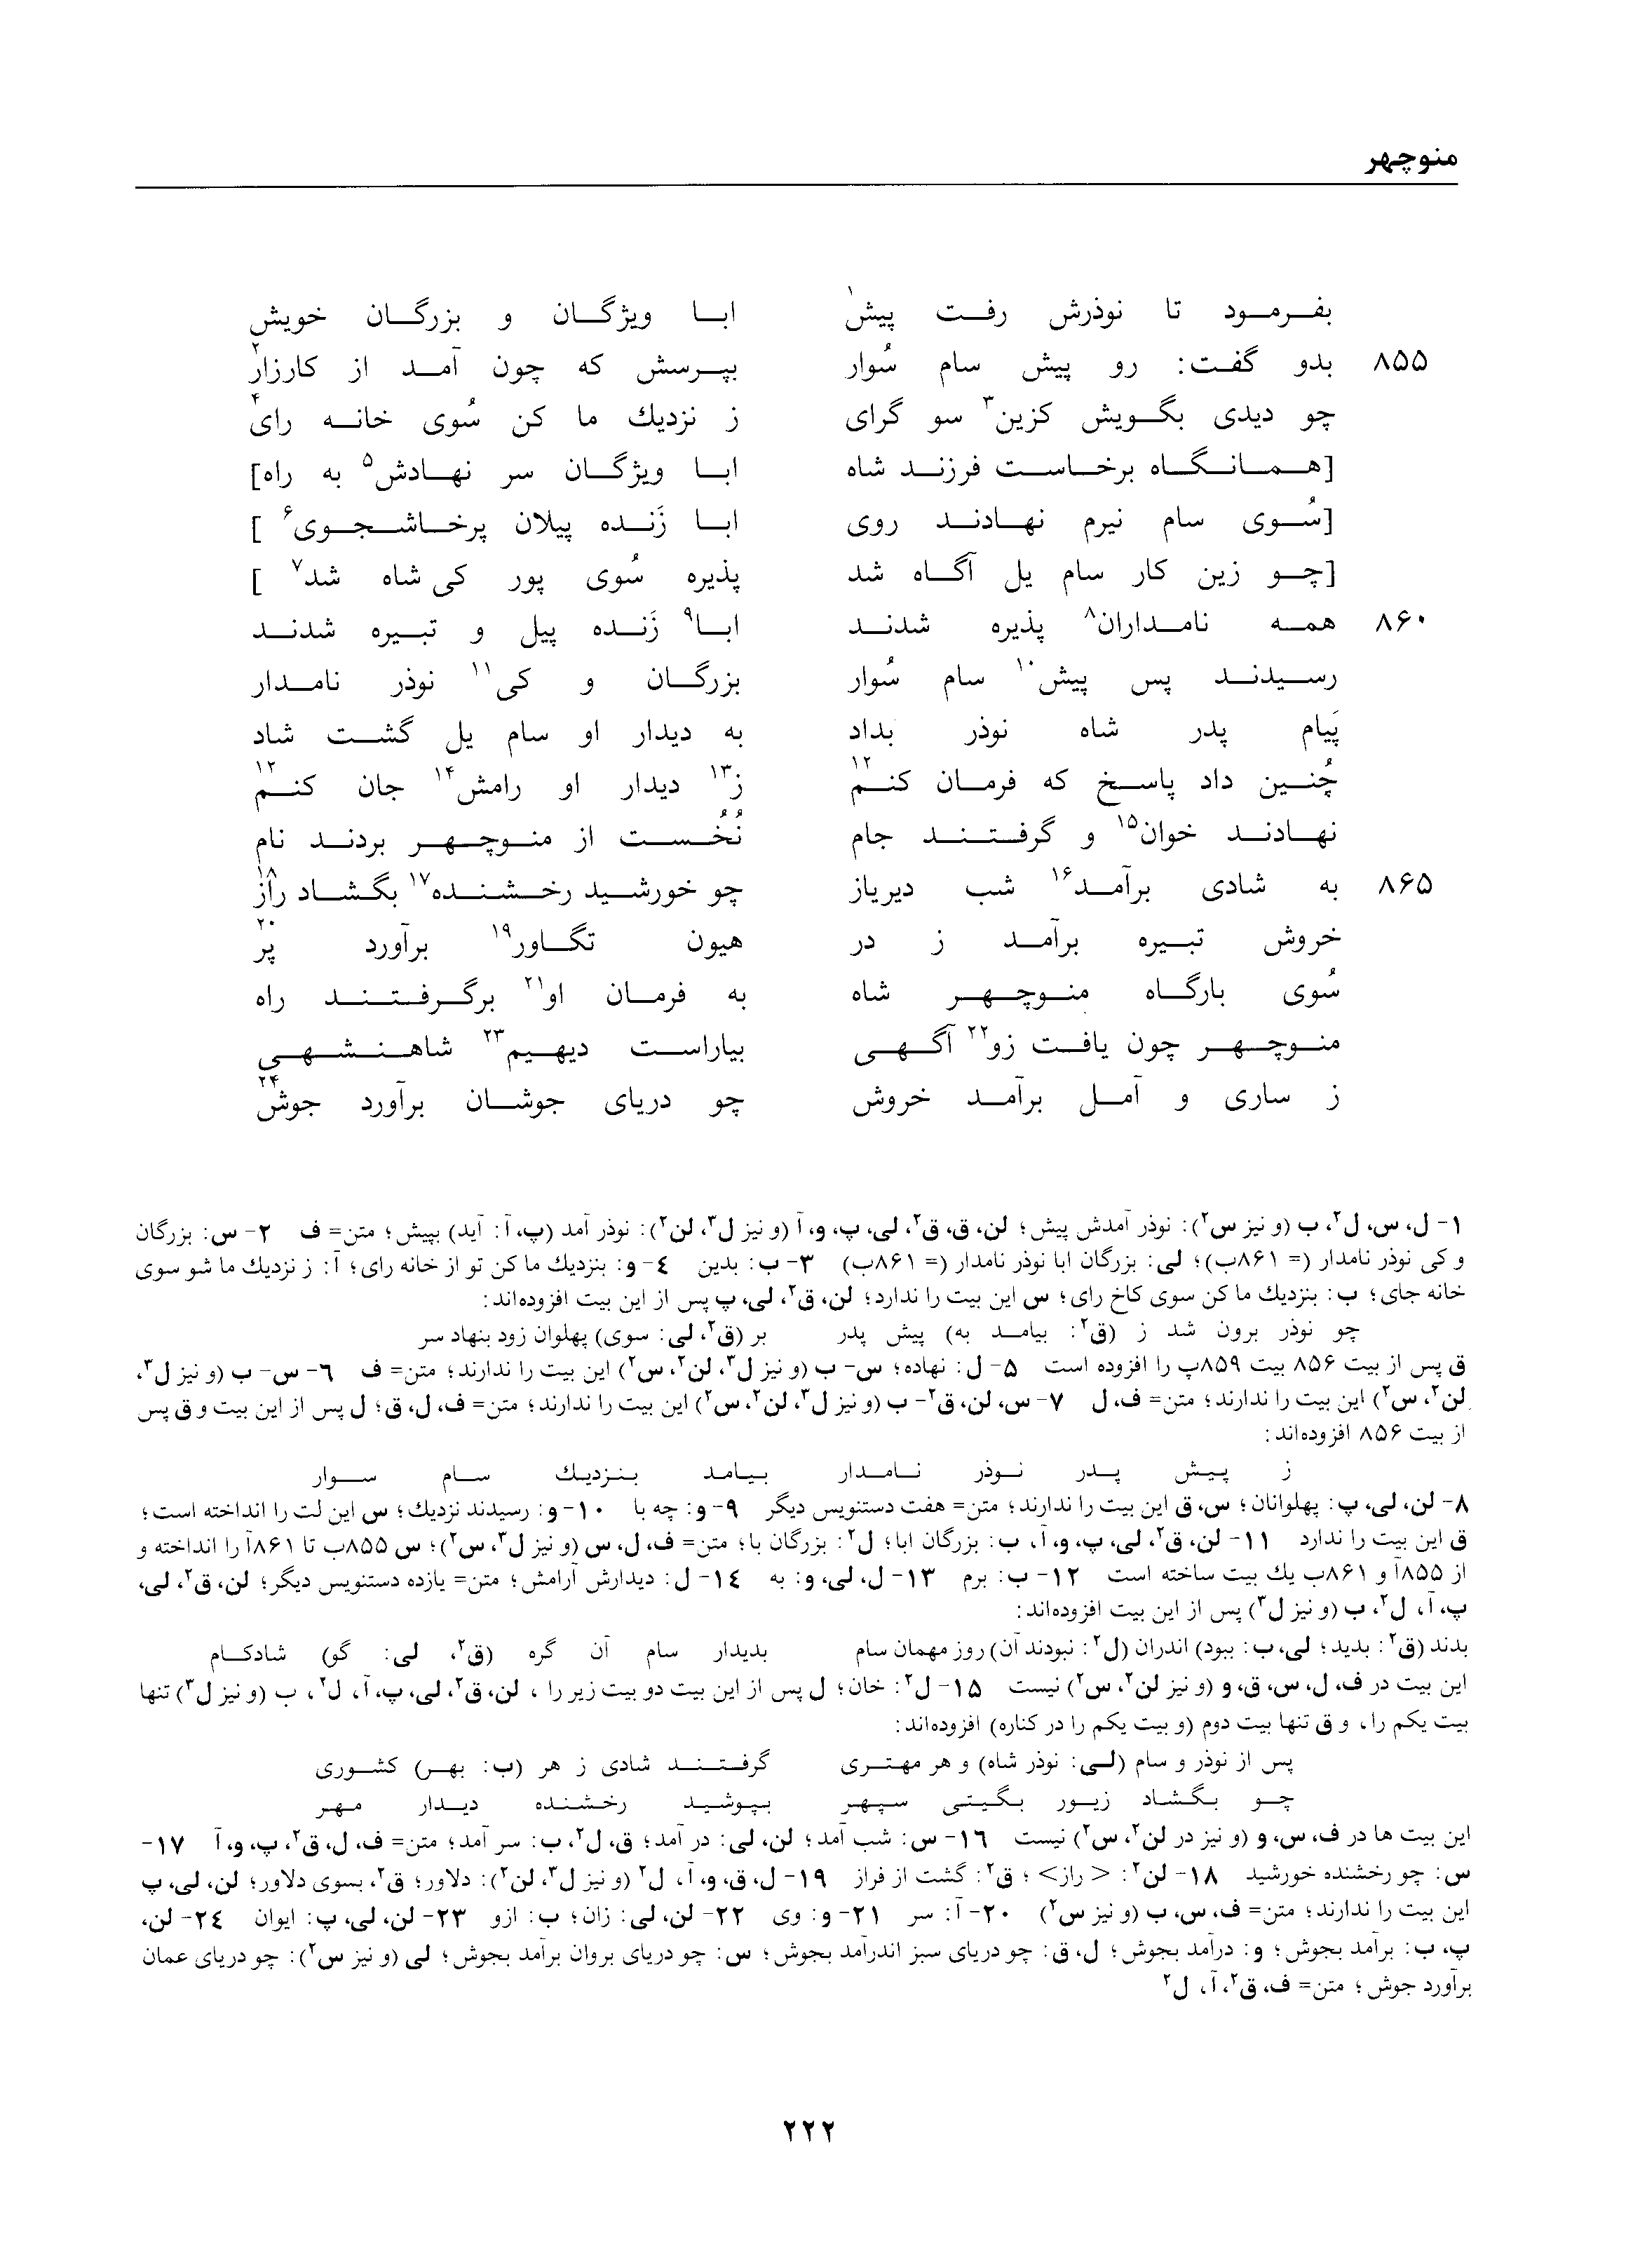 منوچهر
بفرمود تا نوذرش رفت پیش۱ ابا ویژگان و بزرگان خویش
۸۵۵ بدو گفت: رو پیش سام سُوار بپرسش که چون آمد از کارزار۲
چو دیدی بگویش کزین۳ سو گرای ز نزدیك ما کن سُوی خانه رای۴
[همانگاه برخاست فرزند شاه ابا ویژگان سر نهادش۵ به راه]
[سُوی سام نیرم نهادند روی ابا زَنده پیلان پرخاشجوی۶ ]
[چو زین کار سام یل آگاه شد پذیره سُوی پور کی شاه شد۷ ]
۸۶۰ همه نامداران۸ پذیره شدند ابا۹ زَنده پیل و تبیره شدند
رسیدند پس پیش۱۰ سام سُوار بزرگان و کی۱۱ نوذر نامدار
پَیام پدر شاه نوذر بداد به دیدار او سام یل گشت شاد
چُنین داد پاسخ که فرمان کنم۱۲ ز۱۳ دیدار او رامش۱۴ جان کنم۱۲
نهادند خوان۱۵ و گرفتند جام نُخُست از منوچهر بردند نام
۸۶۵ به شادی برآمد۱۶ شب دیریاز چو خورشید رخشنده۱۷ بگشاد راز۱۸
خروش تبیره برآمد ز در هیون تگاور۱۹ برآورد پر۲۰
سُوی بارگاه منوچهر شاه به فرمان او۲۱ برگرفتند راه
منوچهر چون یافت زو۲۲ آگهی بیاراست دیهیم۲۳ شاهنشهی
ز ساری و آمل برآمد خروش چو دریای جوشان برآورد جوش۲۴
۱- ل، س، ل۲، ب (و نیز س۲): نوذر آمدش پیش؛ لن، ق، ق۲، لی، پ، و، آ (و نیز ل۳، لن۲): نوذر آمد (پ، آ: آید) بپیش؛ متن= ف ۲- س: بزرگان
و کی نوذر نامدار (= ۸۶۱ب)؛ لی: بزرگان ابا نوذر نامدار (= ۸۶۱ب) ۳- ب: بدین ٤- و: بنزدیك ما کن تو از خانه رای؛ آ: ز نزدیك ما شو سوی
خانه جای؛ ب: بنزدیك ما کن سوی کاخ رای؛ س این بیت را ندارد؛ لن، ق۲، لی، پ پس از این بیت افزوده‌اند:
چو نوذر برون شد ز (ق۲: بیامد به) پیش پدر بر (ق۲، لی: سوی) پهلوان زود بنهاد سر
ق پس از بیت ۸۵۶ بیت ۸۵۹پ را افزوده است ۵- ل: نهاده؛ س- ب (و نیز ل۳، لن۲، س۲) این بیت را ندارند؛ متن= ف ٦- س- ب (و نیز ل۳،
لن۲، س۲) این بیت را ندارند؛ متن= ف، ل ۷- س، لن، ق۲- ب (و نیز ل۳، لن۲، س۲) این بیت را ندارند؛ متن= ف، ل، ق؛ ل پس از این بیت و ق پس
از بیت ۸۵۶ افزوده‌اند:
ز پیش پدر نوذر نامدار بیامد بنزدیك سام سوار
۸- لن، لی، پ: پهلوانان؛ س، ق این بیت را ندارند؛ متن= هفت دستنویس دیگر ۹- و: چه با ۱۰- و: رسیدند نزدیك؛ س این لت را انداخته است؛
ق این بیت را ندارد ۱۱- لن، ق۲، لی، پ، و، آ، ب: بزرگان ابا؛ ل۲: بزرگان با؛ متن= ف، ل، س (و نیز ل۳، س۲)؛ س ۸۵۵ب تا ۸۶۱آ را انداخته و
از ۸۵۵آ و ۸۶۱ب یك بیت ساخته است ۱۲- ب: برم ۱۳- ل، لی، و: به ۱٤- ل: دیدارش آرامش؛ متن= یازده دستنویس دیگر؛ لن، ق۲، لی،
پ، آ، ل۲، ب (و نیز ل۳) پس از این بیت افزوده‌اند:
بدند (ق۲: بدید؛ لی، ب: ببود) اندران (ل۲: نبودند آن) روز مهمان سام بدیدار سام آن گره (ق۲، لی: گو) شادکام
این بیت در ف، ل، س، ق، و (و نیز لن۲، س۲) نیست ۱۵- ل۲: خان؛ ل پس از این بیت دو بیت زیر را، لن، ق۲، لی، پ، آ، ل۲، ب (و نیز ل۳) تنها
بیت یکم را، و ق تنها بیت دوم (و بیت یکم را در کناره) افزوده‌اند:
پس از نوذر و سام (لی: نوذر شاه) و هر مهتری گرفتند شادی ز هر (ب: بهر) کشوری
چو بگشاد زیور بگیتی سپهر بپوشید رخشنده دیدار مهر
این بیت ها در ف، س، و (و نیز در لن۲، س۲) نیست ۱٦- س: شب آمد؛ لن، لی: در آمد؛ ق، ل۲، ب: سر آمد؛ متن= ف، ل، ق۲، پ، و، آ ۱۷-
س: چو رخشنده خورشید ۱۸- لن۲: < راز> ؛ ق۲: گشت از فراز ۱۹- ل، ق، و، آ، ل۲ (و نیز ل۳، لن۲): دلاور؛ ق۲، بسوی دلاور؛ لن، لی، پ
این بیت را ندارند؛ متن= ف، س، ب (و نیز س۲) ۲۰- آ: سر ۲۱- و: وی ۲۲- لن، لی: زان؛ ب: ازو ۲۳- لن، لی، پ: ایوان ۲٤- لن،
پ، ب: برآمد بجوش؛ و: درآمد بجوش؛ ل، ق: چو دریای سبز اندرآمد بجوش؛ س: چو دریای بروان برآمد بجوش؛ لی (و نیز س۲): چو دریای عمان
برآورد جوش؛ متن= ف، ق۲، آ، ل۲
۲۲۲